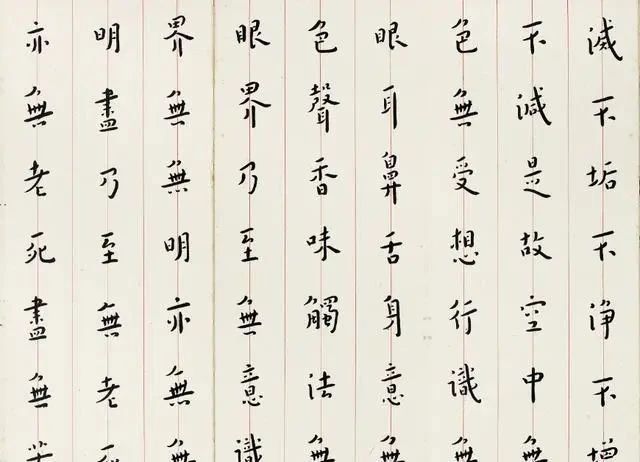 滅不垢不淨不增
不減是故空中無
色無受想行識無
眼耳鼻舌身意無
色聲香味觸法無
眼界乃至無意識
界無無明亦無無
明盡乃至無老死
亦無老死盡無苦